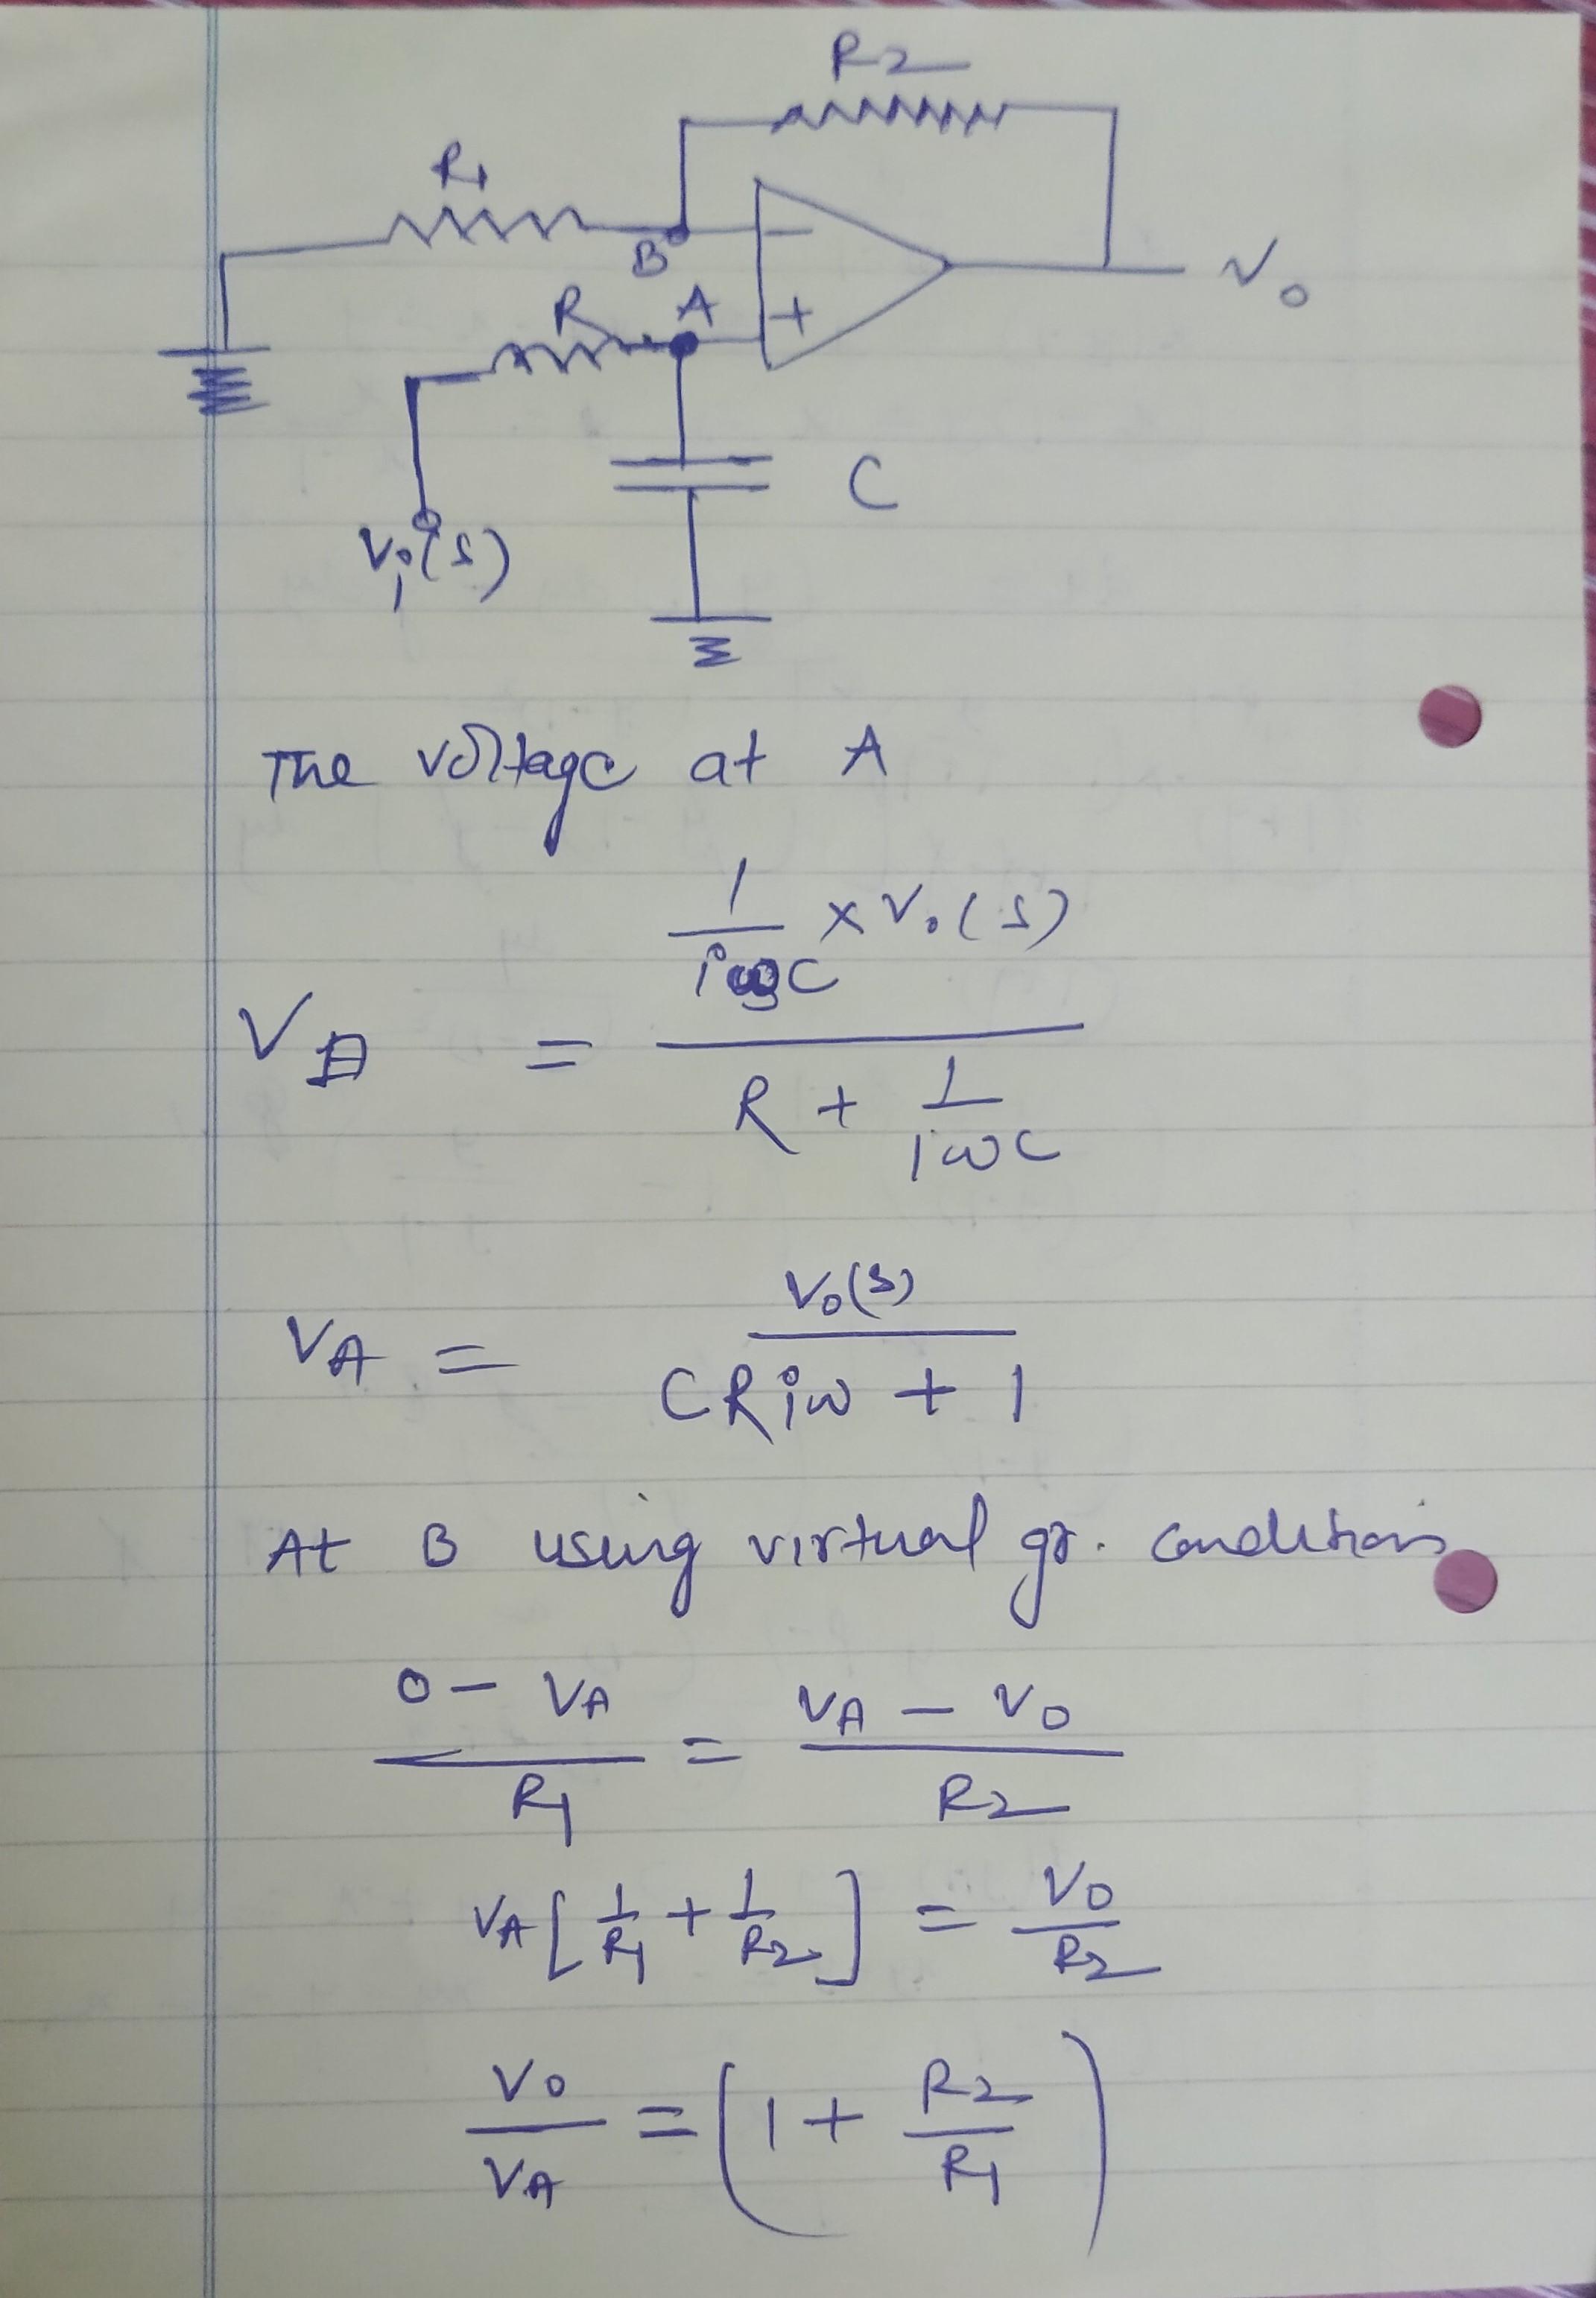 R2
R1
B
R A
−
+
Vo
C
Vi(s)
The voltage at A
VA = (1/iωC × Vo(s)) / (R + 1/iωC)
VA = Vo(s) / (CRiω + 1)
At B using virtual gr. conditions
(0 − VA)/R1 = (VA − Vo)/R2
VA[1/R1 + 1/R2] = Vo/R2
Vo/VA = (1 + R2/R1)